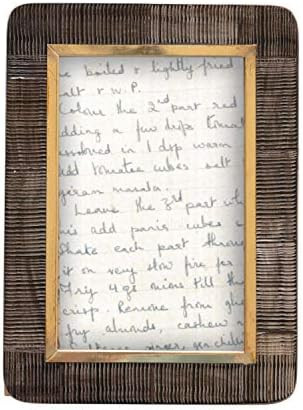 be boiled & lightly fried
salt & w.P.
Colour the 2nd part red
adding a few drops tomat
dissolved in 1 dsp warm
add tomatoe cubes salt
giram masala.
Leave the 3rd part whi
his add panir cubes &
Shake each part throu
it on very slow fire for
Fry 4 oz onions till th
crisp. Remove from ghe
fry almonds, cashew n
ginger, green chilies